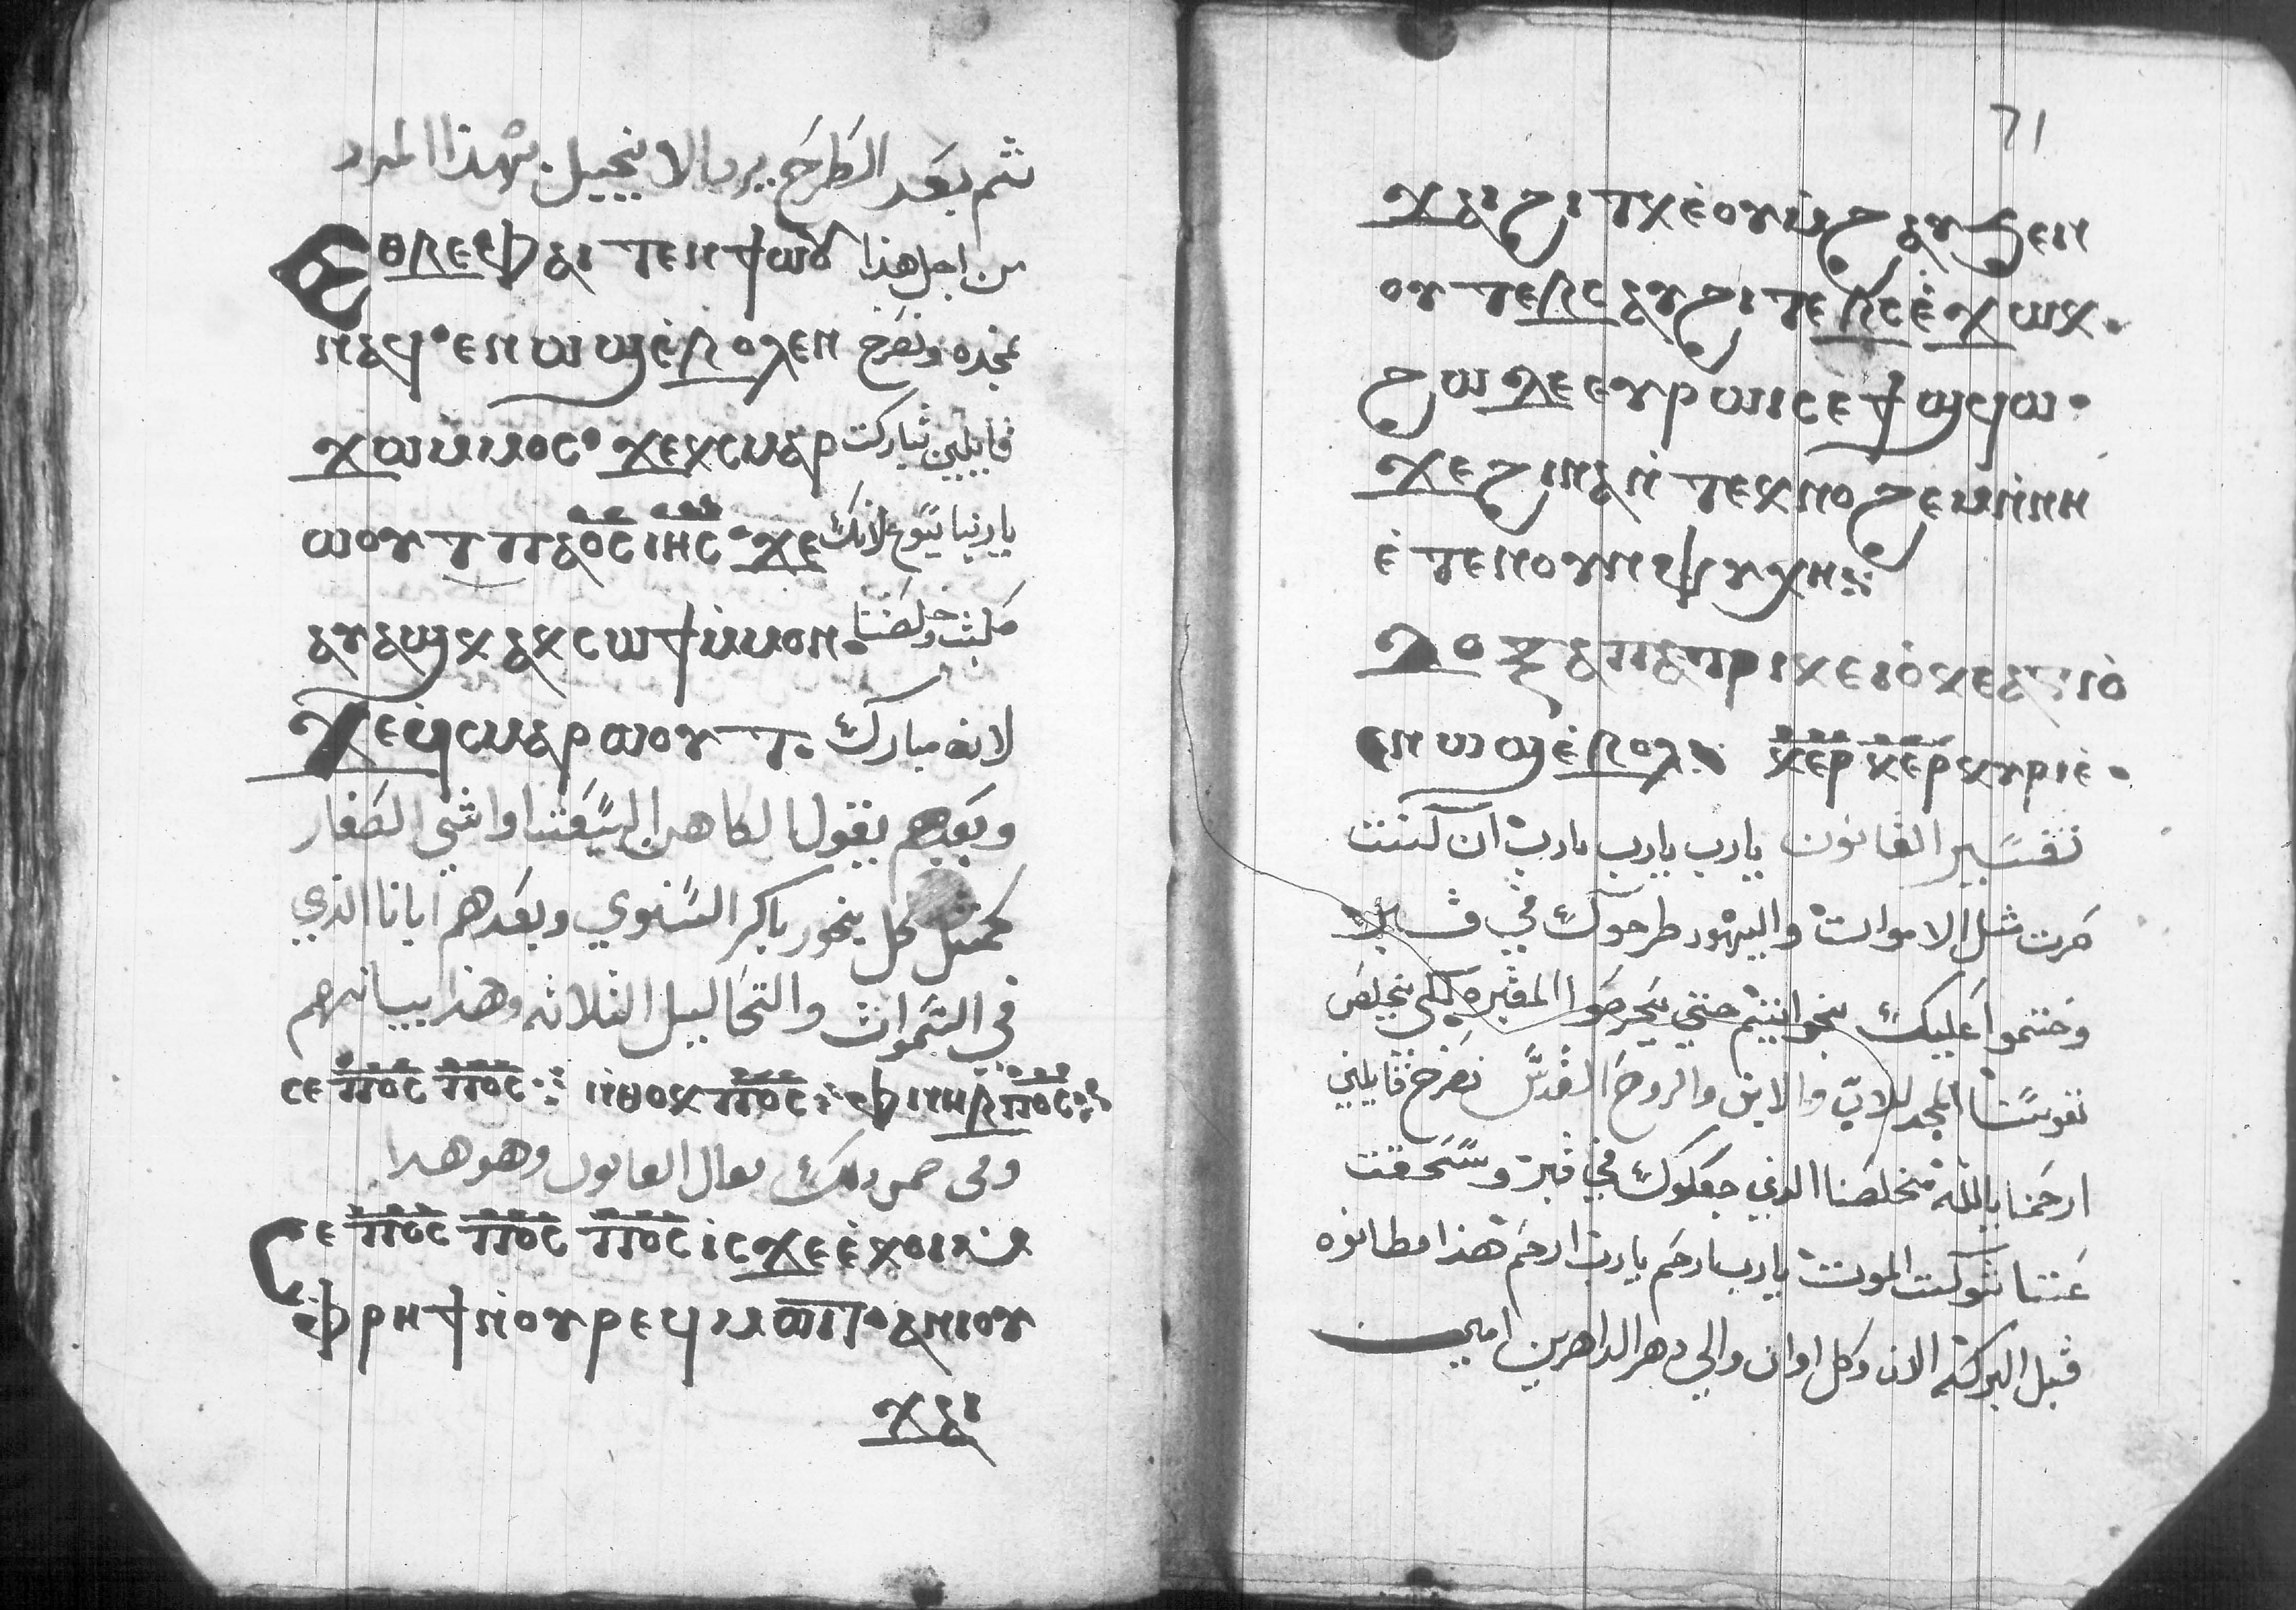 ثم بعد الطرح يرد الانجيل بهذا المرد
Ⲉⲑⲃⲉⲫⲁⲓ ⲧⲉⲛϯⲱⲟⲩ من اجل هذا
ⲛⲁϥ·ⲉⲛⲱϣⲉ̀ⲃⲟⲗⲉⲛ نمجده ونصرخ
ϫⲱⲙⲙⲟⲥ· ϫⲉⲕⲥⲙⲁⲣ قايلين تباركت
ⲱⲟⲩⲧ ⲡⲁⲟ̅ⲥ̅ ⲓⲏ̅ⲥ̅·ϫⲉ يا ربنا يسوع لانك
ⲁⲩⲁϣⲕ ⲁⲕⲥⲱϯⲙ̀ⲙⲟⲛ· صلبت وخلصتنا
ϫⲉϥ̀ⲥⲙⲁⲣⲱⲟⲩⲧ· لانه مبارك
وبعدهم يقول الكاهن اواشي الصغار
كمثل كل بخور باكر السنوي وبعدهم ابانا الذي
في السموات والتحاليل الثلاثه وهذا بيانهم
ⲥⲉ ⲡ̅ⲟ̅ⲥ̅ ⲡ̅ⲟ̅ⲥ̅ ⲛ̀ⲑⲟⲕ ⲡ̅ⲟ̅ⲥ̅ ⲫⲛⲏⲃ ⲡ̅ⲟ̅ⲥ̅
هذا القانون وهو
ⲥⲉ ⲡ̅ⲟ̅ⲥ̅ ⲡ̅ⲟ̅ⲥ̅ ⲡ̅ⲟ̅ⲥ̅ ⲓⲥϫⲉ ⲉ̀ⲕⲟⲓ ⲙ̀
ⲫ̀ⲣⲏϯ ⲛ̀ⲟⲩⲣⲉϥⲙⲱⲟⲩⲧ·ⲁⲛⲓⲟⲩ
ϫⲁⲓ
71
ϫⲁⲓ ϩⲓⲧⲕ ⲉ̀ⲟⲩⲙ̀ϩⲁⲩ ϧⲉⲛ
ⲟⲩ ⲧⲉⲃⲥ ⲁⲩϩⲓ ⲧⲉⲃⲥ ⲉ̀ϫⲱⲕ·
ϩⲱⲗ ⲉⲉⲩⲣⲱⲓⲥ ⲉϯϣϥⲱ·
ϫⲉ ϩⲓⲛⲁ ⲛ̀ⲧⲉⲕⲛⲟϩⲉⲙ ⲛ̀ⲛⲏ
ⲉ̀ⲧⲉ ⲛⲟⲩⲛ ⲯⲩⲭⲏ
ⲇⲟⲝⲁⲡⲁⲧⲣⲓ ⲕⲉ ⲓ̀ⲟ̀ ⲕⲉ ⲁⲅⲓⲟ̀
ⲉⲛⲱϣ ⲉ̀ⲃⲟⲗ ⲕ̅ⲉ̅ⲣ̅ ⲕ̅ⲉ̅ⲣ̅ ⲕⲩⲣⲓⲉ̀·
تفسير القانون يارب يارب يارب ان كنت
صرت مثل الاموات واليهود طرحوك في قبر
وختموا عليك حتي يحرصوا المقبره لكي يخلص
نفوسنا المجد للاب والابن والروح القدس نصرخ قايلين
ارحمنا يالله مخلصنا الذي جعلوك في قبر وسحقت
عنا شوكت الموت يارب ارحم يارب ارحم هذا مطانوه
قبل البركه الان وكل اوان والي دهر الداهرين امين